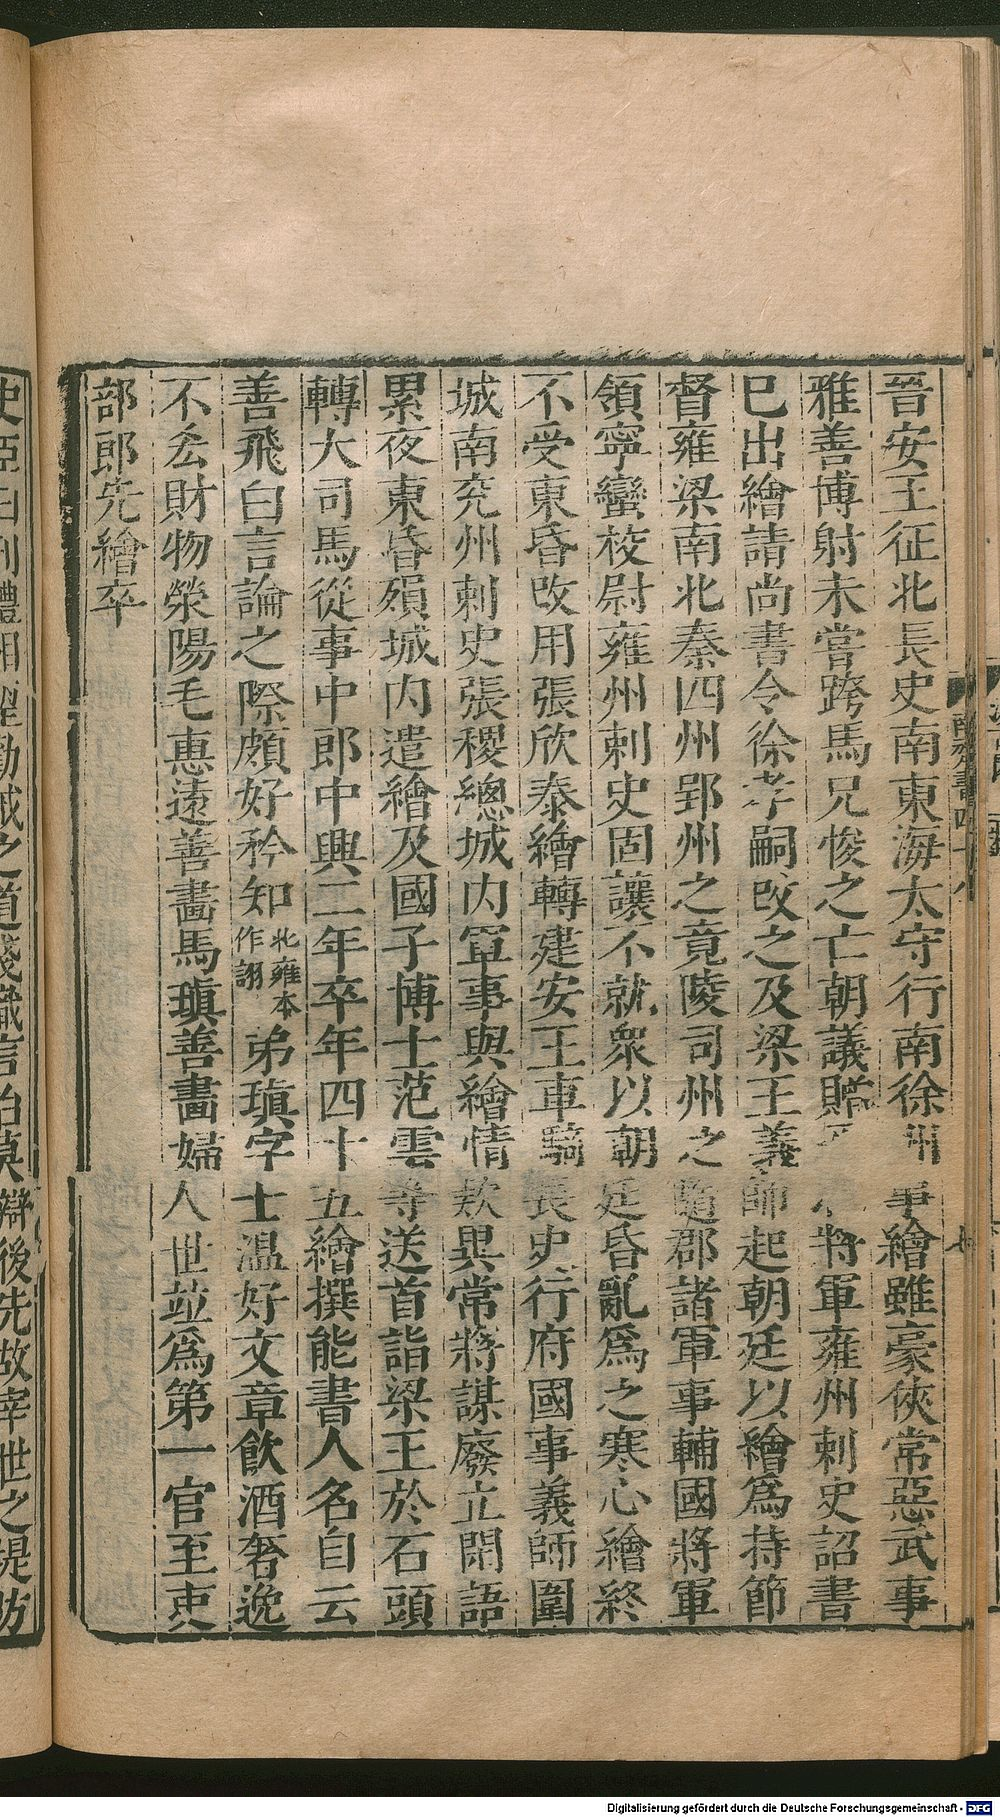 晉安王征北長史南東海太守行南徐州事繪雖豪俠常惡武事
雅善博射未嘗跨馬兄悛之亡朝議贈將軍雍州刺史詔書
巳出繪請尚書令徐孝嗣改之及梁王義師起朝廷以繪爲持節
督雍梁南北秦四州郢州之竟陵司州之隨郡諸軍事輔國將軍
領寧蠻校尉雍州刺史固讓不就衆以朝廷昏亂爲之寒心繪終
不受東昏改用張欣泰繪轉建安王車騎長史行府國事義師圍
城南兗州刺史張稷總城内軍事與繪情款異常將謀廢立閑語
累夜東昏殞城内遣繪及國子博士范雲等送首詣梁王於石頭
轉大司馬從事中郎中興二年卒年四十五繪撰能書人名自云
善飛白言論之際頗好矜知北雍本作詡弟瑱字士溫好文章飲酒奢逸
不吝財物滎陽毛惠遠善畫馬瑱善畫婦人世並爲第一官至吏
部郎先繪卒
後先故宰世之堤防
Digitalisierung gefördert durch die Deutsche Forschungsgemeinschaft - DFG